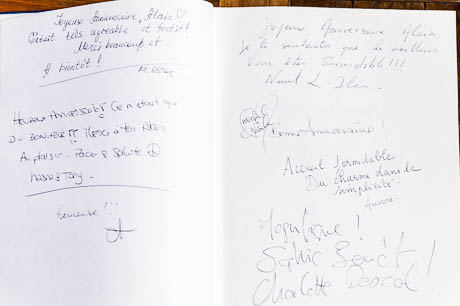 Joyeux Anniversaire, Alain ♡
C'était très agréable et festif!
Merci beaucoup et
A bientôt!
Heureux Anniversaire!! Ce n'était que
Du BONHEUR!! Merci à toi Alain
Au plaisir. Peace & Salute
heureuse!!!
Joyeux Anniversaire Alain
Je te souhaite que le meilleur
Vous êtes formidable!!!
Bonne Anniversaire!
Accueil formidable
Du charme dans la
simplicité.
Aurore.
Magnifique!
Sophie
Charlotte